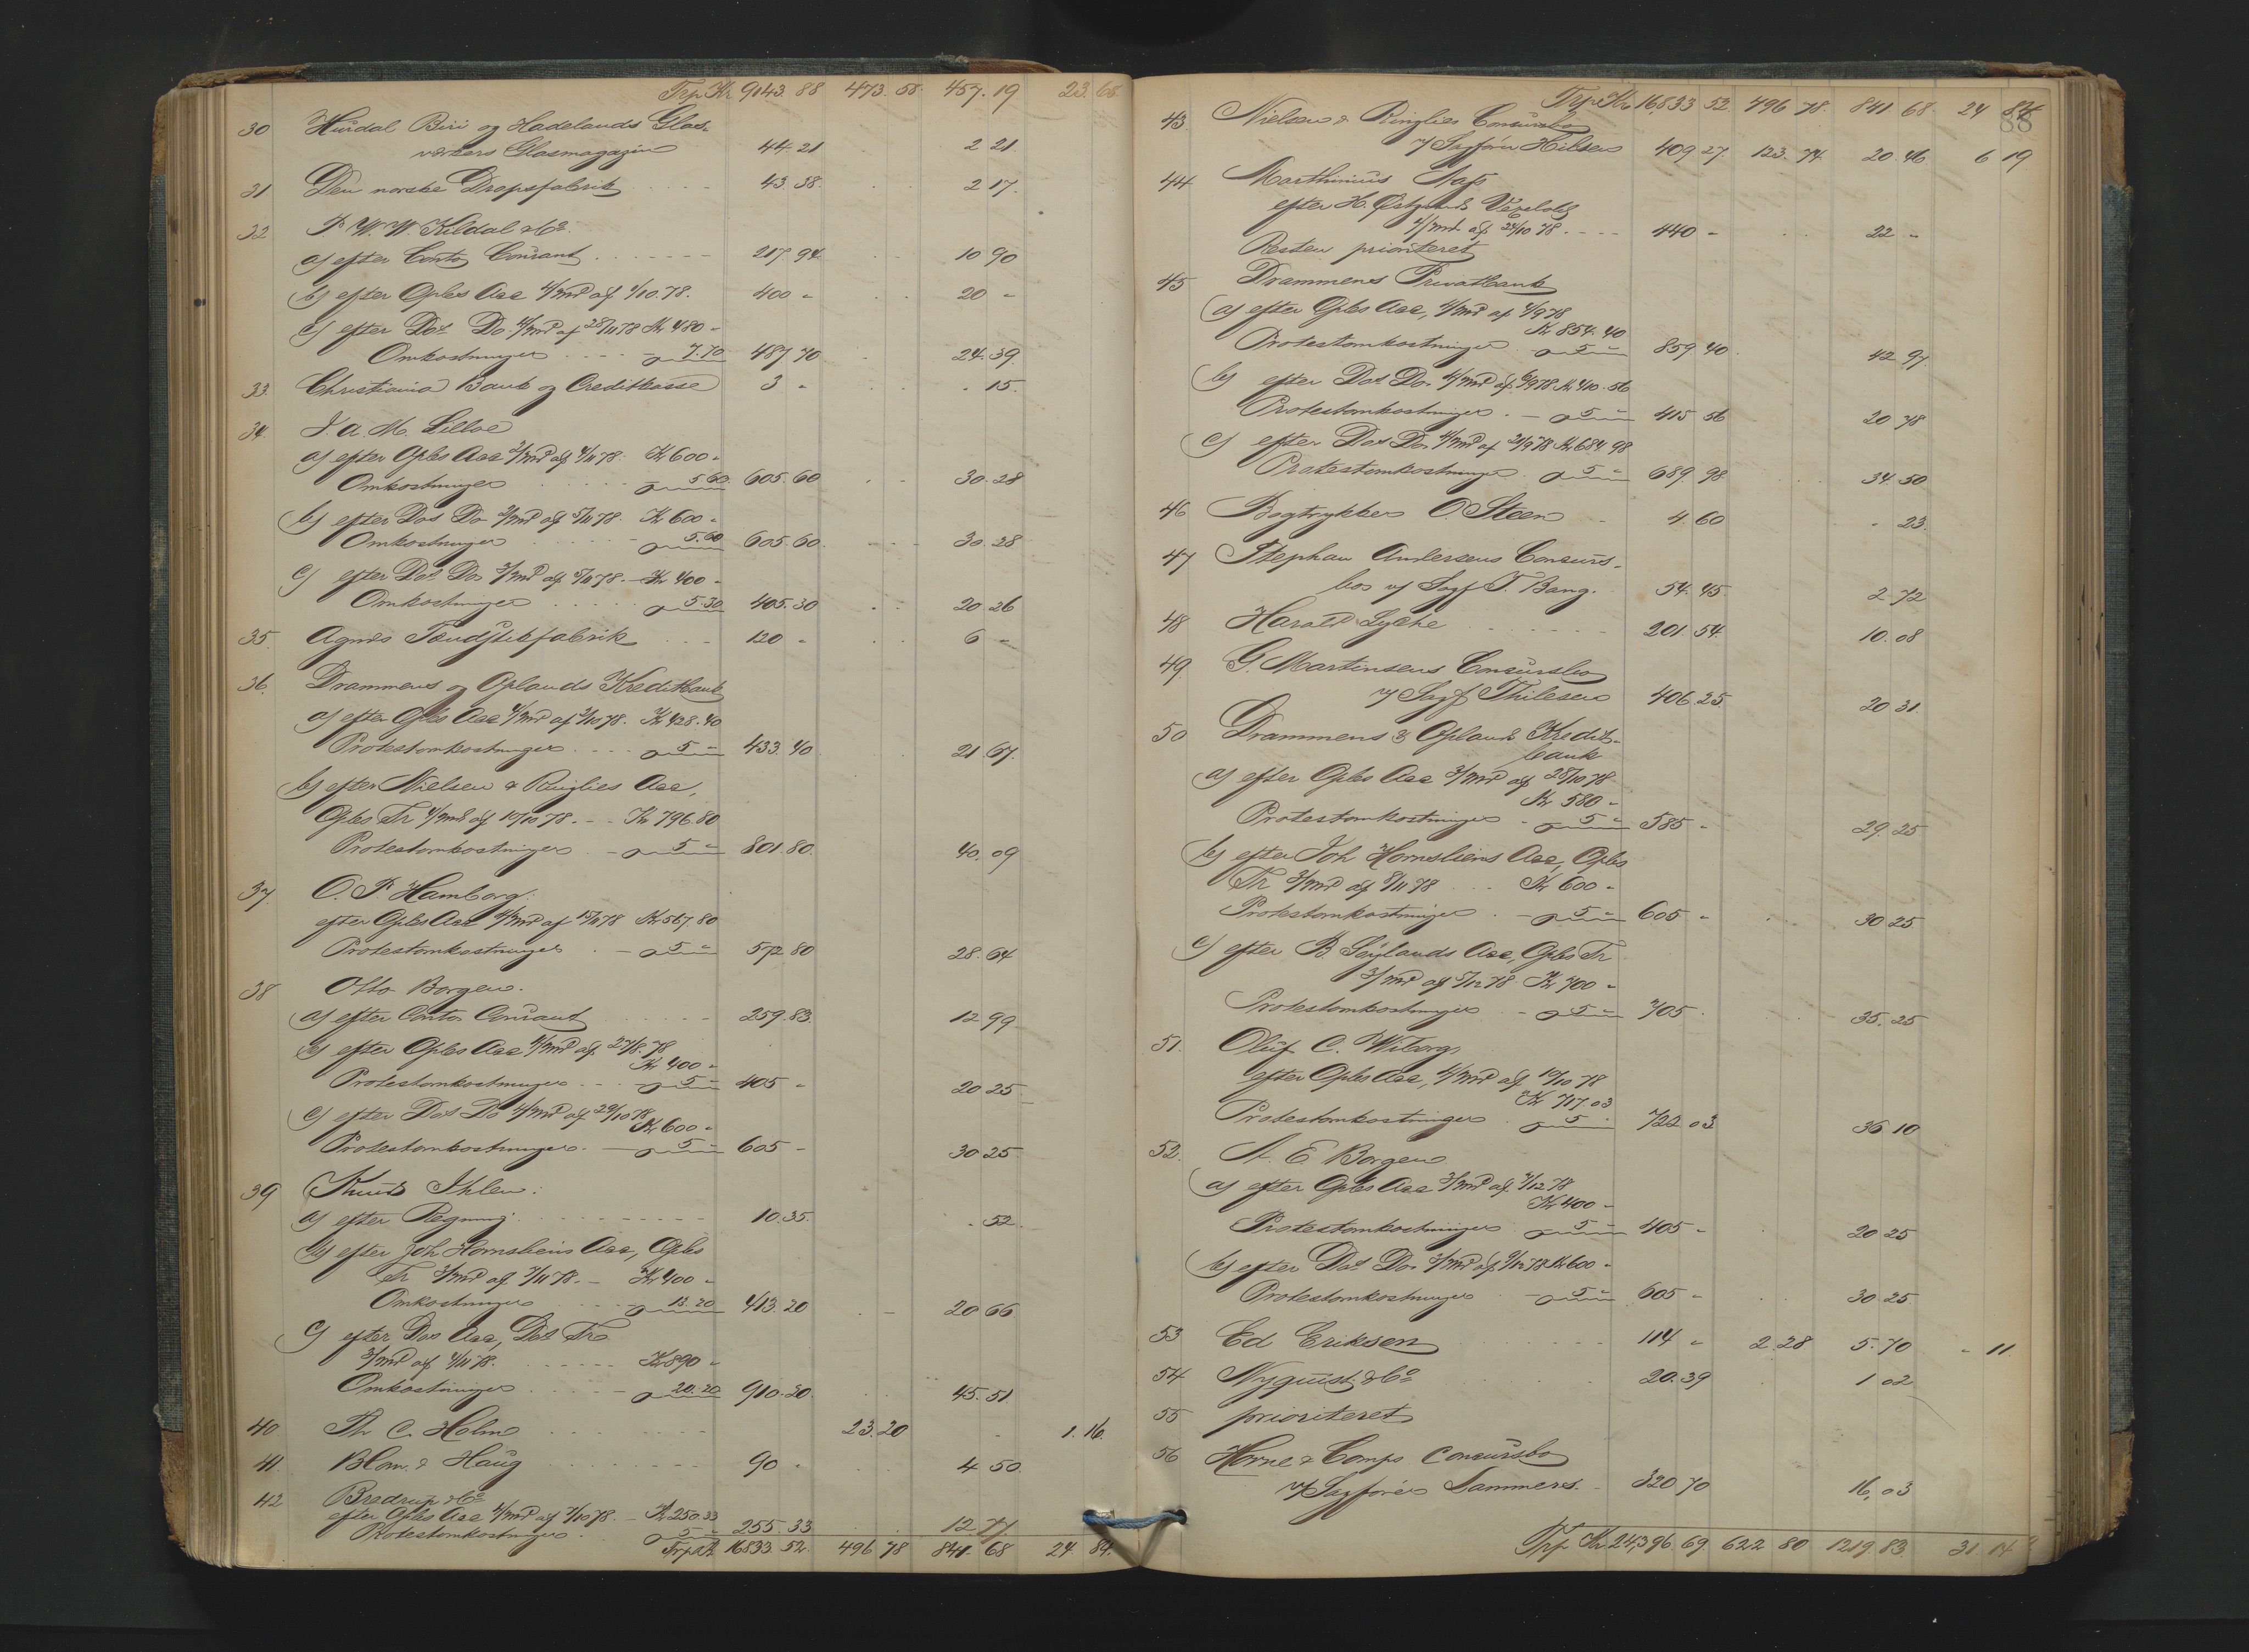 Trp Kr 9143.88 473.58 457.19 23.68
30 Hurdal Biri og Hadelands Glas-
værkers Glasmagazin 44 21 2 21
31 Den norske Dropsfabrik 43 38 2 17
32 P. W. W. Kildal & Co
a) efter Conto Courant 217 94 10 90
b) efter Opbs Acc 4/md af 1/10.78. 400 - 20 -
c) efter Dos Do. 4/md af 28/11 78 Kr 480 -
Omkostninger - 7.70 487 70 24.39
33. Christiania Bank og Creditkasse 3 - - 15.
34. J. A. M. Lilloe
a) efter Opbs Acc 3/md af 4/11 78. Kr 600 -
Omkostninger - 5.60 605.60 30.28
b) efter Dos Do 3/md af 5/11 78. Kr 600 -
Omkostninger - 5.60 605.60 30 28
c) efter Dos Do 3/md af 5/11 78. - Kr 400 -
Omkostninger 5.30 405.30 20 26
35. Agnes Tændstikfabrik 120 - 6 -
36. Drammens og Oplands Kreditbank
a) efter Opbs Acc 4/md af 2/10 78. Kr 428.40
Protestomkostninger 5 - 433.40 21.67.
b) efter Nielsen & Ringlies Acc,
Opbs Tr 4/md af 10/10 78. - - Kr 796.80
Protestomkostninger - 5 - 801.80 40.09
37. O. P. Hamborg.
efter Opbs Acc 4/md af 15/11 78 Kr 567.80
Protestomkostninger - 5 - 572 80 28.64
38 Otto Borgen.
a) efter Conto Courant 259.83 12 99
b) efter Opbs Acc 4/md af 27/8.78
Kr 400 -
Protestomkostninger - 5 - 405 - 20 25
c) efter Dos Do 4/md af 29/10 78
Kr 600 -
Protestomkostninger - 5 - 605 - 30 25
39 Knud Ihlen.
a) efter Regning 10.35 - 52
b) efter Joh Hornsliens Acc, Opbs
Tr 3/md af 7/11 78. - Kr 400 -
Omkostninger - 13.20 413.20 20 66
c) efter Dos Acc, Dos Tr
3/md af 4/11 78. Kr 890 -
Omkostninger - 20.20 910.20 45.51
40 Th C. Holm 23.20 - 1.16.
41 Blom & Haug 90 - 4 50
42 Bredrup & Co
efter Opbs Acc 4/md af 7/10 78. - Kr 250.33
Protestomkostninger - 5 - 255.33 12 77
Trp Kr 16833 52 496 78 841.68 24.84.
88
Trp Kr 16833 52. 496 78. 841 68. 24 84
43. Nielsen & Ringlies Concursbo
v/ Sagfører Hilsen 409 27. 123.74. 20.46 6 19
44 Marthinius Aas
efter H. Østgaards Vexelobl
4/md af 24/10 78 440 - 22 -
Resten prioriteret
45 Drammens Privatbank
a) efter Opbs Acc, 4/md af 4/9 78
Kr 854.40
Protestomkostninger - 5 - 859.40 42.97
b) efter Dos Do 4/md af 6/9 78 Kr 410.56
Protestomkostninger - 5 - 415 56 20 78
c) efter Dos Do. 4/md af 21/9 78 Kr 684.98
Protestomkostninger - 5 - 689.98 34.50
46 Bogtrykker O. Steen 4.60 - 23
47 Stephan Andersens Concurs-
bo v/ Sagf T. Bang. 54.45 2.72
48 Harald Lyche 201.54 10.08
49 G. Martinsens Concursbo
v/ Sagf Thilesen 406 25 20 31
50 Drammens & Oplands Kredit-
bank
a) efter Opbs Acc 3/md af 28/10 78
Kr 580 -
Protestomkostninger - 5 - 585 - 29.25
b) efter Joh Hornsliens Acc, Opbs
Tr 3/md af 8/11 78 Kr 600 -
Protestomkostninger - 5 - 605 - 30 25
c) efter B Søylands Acc, Opbs Tr
3/md af 5/12 78. Kr 700 -
Protestomkostninger - 5 - 705 - 35.25
51. Oluf C. Wiborg
efter Opbs Acc, 4/md af 10/10 78
Kr 717 03
Protestomkostninger 5 - 722 03 36 10
52. A. E Borgen
a) efter Opbs Acc 3/md af 7/12 78
Kr 400 -
Protestomkostninger 5 - 405 - 20 25
b) efter Dos Do 3/md af 9/12 78 Kr 600 -
Protestomkostninger - 5 - 605 - 30 25
53 Ed Eriksen 114 - 2 28 5.70 - 11.
54 Nyquist & Co 20.39 1 02
55 prioriteret
56 Horne & Comps Concursbo
v/ Sagfører Lammers. 320 70 16,03
Trp Kr 24,396.69 622 80 1219.83 31.14